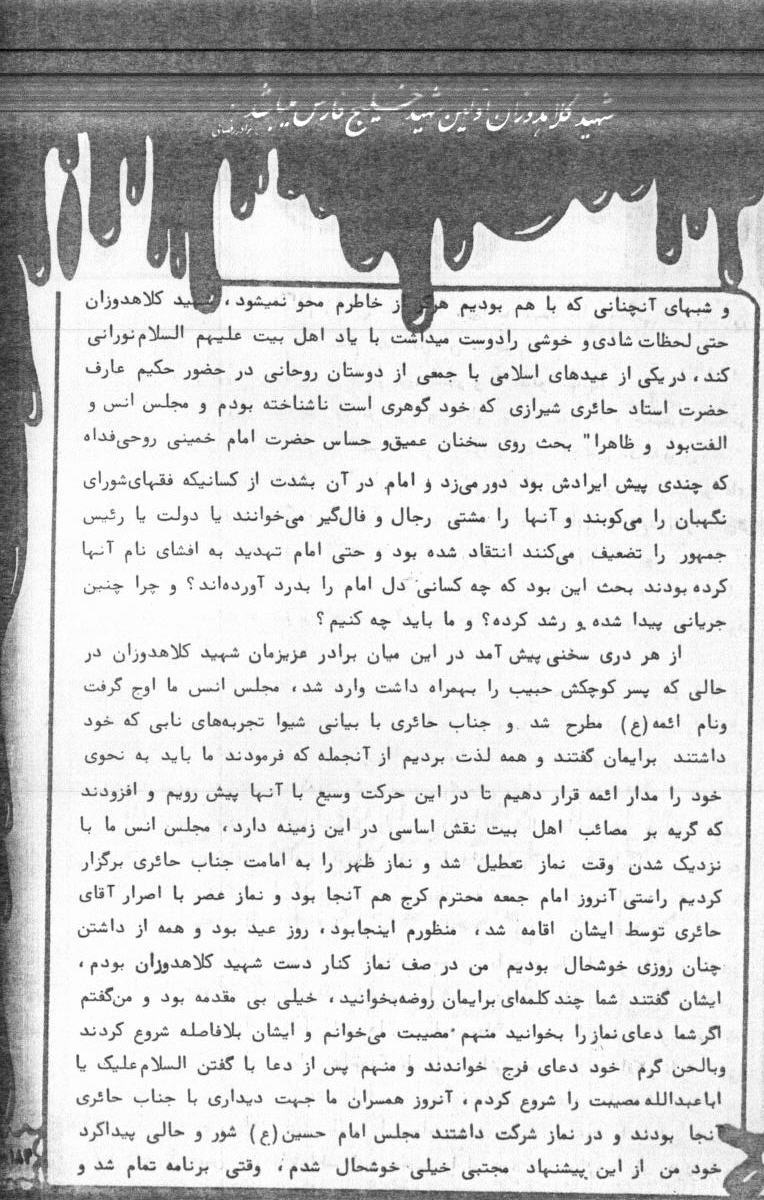 شهید کلاهدوزان اولین شهید خلیج فارس میباشد
و شبهای آنچنانی که با هم بودیم هرگز از خاطرم محو نمیشود، شهید کلاهدوزان
حتی لحظات شادی و خوشی رادوست میداشت با یاد اهل بیت علیهم السلام نورانی
کند، در یکی از عیدهای اسلامی با جمعی از دوستان روحانی در حضور حکیم عارف
حضرت استاد حائری شیرازی که خود گوهری است ناشناخته بودم و مجلس انس و
الفت‌بود و ظاهرا" بحث روی سخنان عمیق‌و حساس حضرت امام خمینی روحی‌فداه
که چندی پیش ایرادش بود دور می‌زد و امام در آن بشدت از کسانیکه فقهای‌شورای
نگهبان را می‌کوبند و آنها را مشتی رجال و فال‌گیر می‌خوانند یا دولت یا رئیس
جمهور را تضعیف می‌کنند انتقاد شده بود و حتی امام تهدید به افشای نام آنها
کرده بودند بحث این بود که چه کسانی دل امام را بدرد آورده‌اند؟ و چرا چنین
جریانی پیدا شده و رشد کرده؟ و ما باید چه کنیم؟
از هر دری سخنی پیش آمد در این میان برادر عزیزمان شهید کلاهدوزان در
حالی که پسر کوچکش حبیب را بهمراه داشت وارد شد، مجلس انس ما اوج گرفت
ونام ائمه(ع) مطرح شد و جناب حائری با بیانی شیوا تجربه‌های نابی که خود
داشتند برایمان گفتند و همه لذت بردیم از آنجمله که فرمودند ما باید به نحوی
خود را مدار ائمه قرار دهیم تا در این حرکت وسیع با آنها پیش رویم و افزودند
که گریه بر مصائب اهل بیت نقش اساسی در این زمینه دارد، مجلس انس ما با
نزدیک شدن وقت نماز تعطیل شد و نماز ظهر را به امامت جناب حائری برگزار
کردیم راستی آنروز امام جمعه محترم کرج هم آنجا بود و نماز عصر با اصرار آقای
حائری توسط ایشان اقامه شد، منظورم اینجابود، روز عید بود و همه از داشتن
چنان روزی خوشحال بودیم من در صف نماز کنار دست شهید کلاهدوزان بودم،
ایشان گفتند شما چند کلمه‌ای برایمان روضه‌بخوانید، خیلی بی مقدمه بود و من‌گفتم
اگر شما دعای نماز را بخوانید منهم مصیبت می‌خوانم و ایشان بلافاصله شروع کردند
وبالحن گرم خود دعای فرج خواندند و منهم پس از دعا با گفتن السلام‌علیک یا
اباعبدالله مصیبت را شروع کردم، آنروز همسران ما جهت دیداری با جناب حائری
آنجا بودند و در نماز شرکت داشتند مجلس امام حسین(ع) شور و حالی پیداکرد
خود من از این پیشنهاد مجتبی خیلی خوشحال شدم، وقتی برنامه تمام شد و